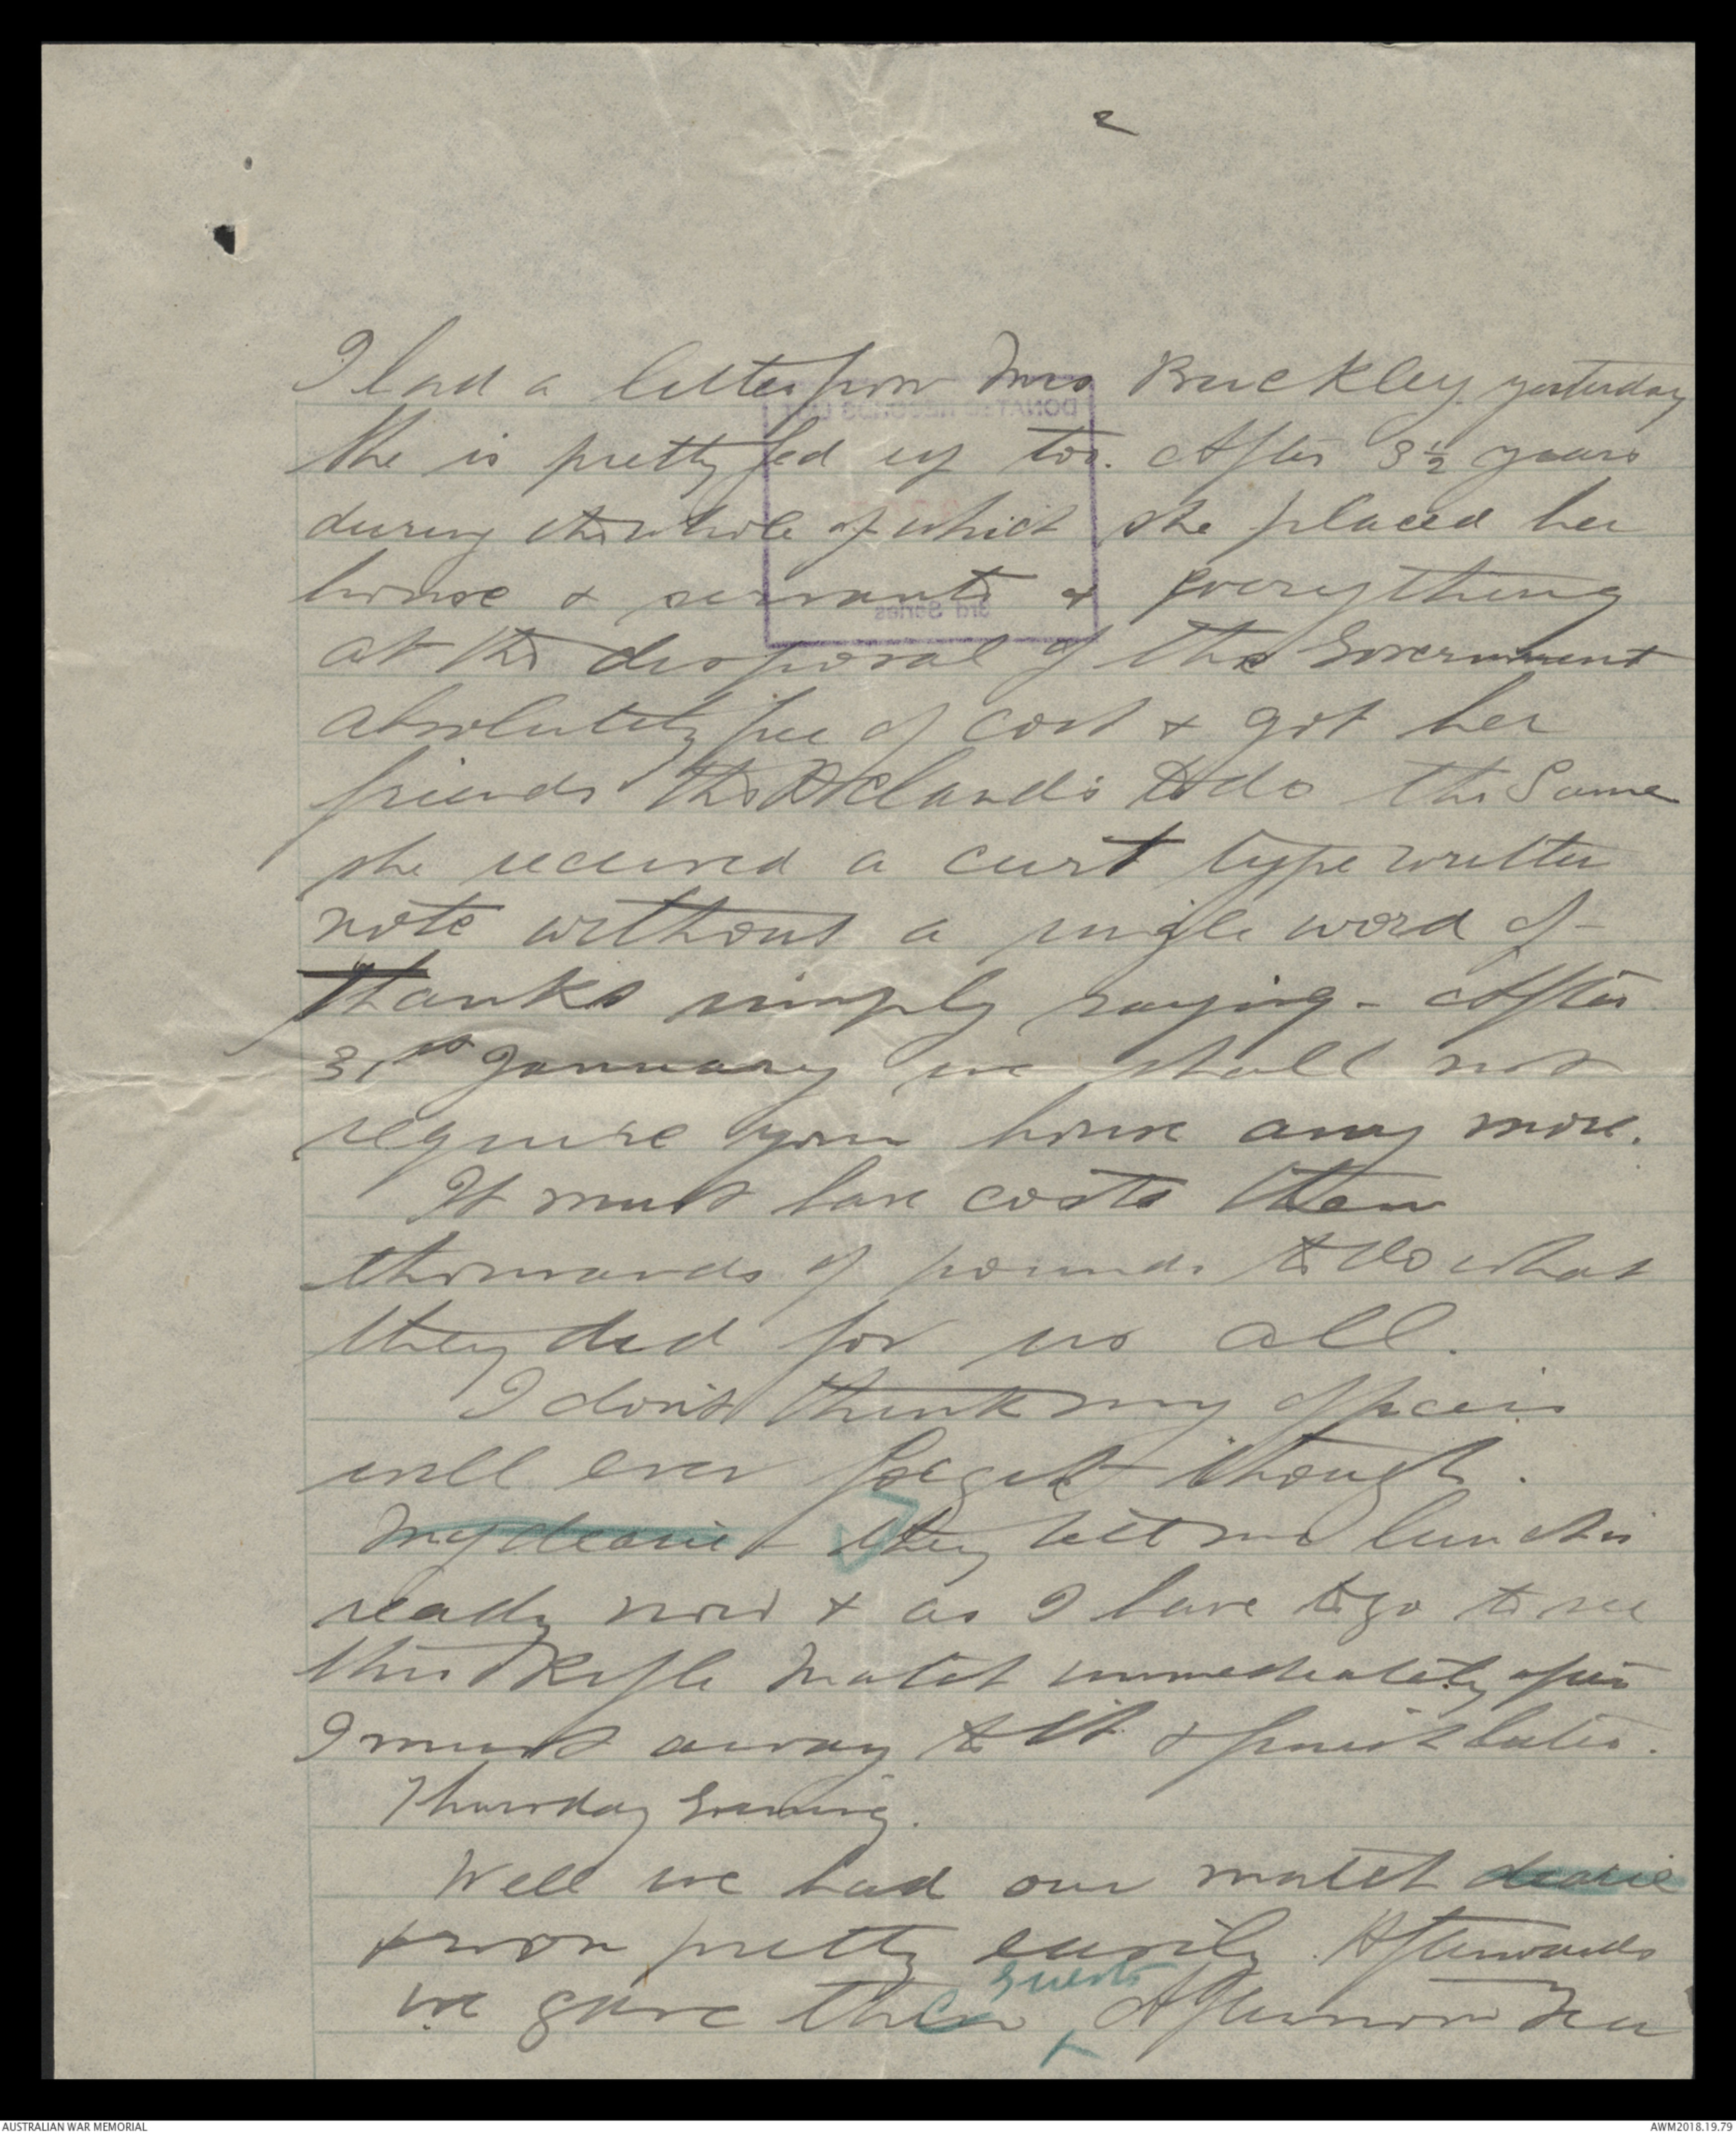 2
I had a letter from Mrs Buckley yesterday
She is pretty fed up too. After 3½ years
during the whole of which she placed her
house & servants & everything
at the disposal of the Government
absolutely free of cost & got her
friends the Aclands to do the same
she received a curt type written
note without a single word of
thanks simply saying - After
31st January we shall not
require your house any more.
It must have costs them
thousands of pounds to do what
they did for us all.
I don't think my officers
will ever forget though.
My dearie - they tell me lunch is
ready now & as I have to go to see
this Rifle Match immediately after
I must away to it & finish later.
Thursday Evening.
Well we had our match dearie
& won pretty easily. Afterwards
guests
we gave them Afternoon Tea
DONATED RECORDS LIST
3rd Series
AUSTRALIAN WAR MEMORIAL
AWM2018.19.79